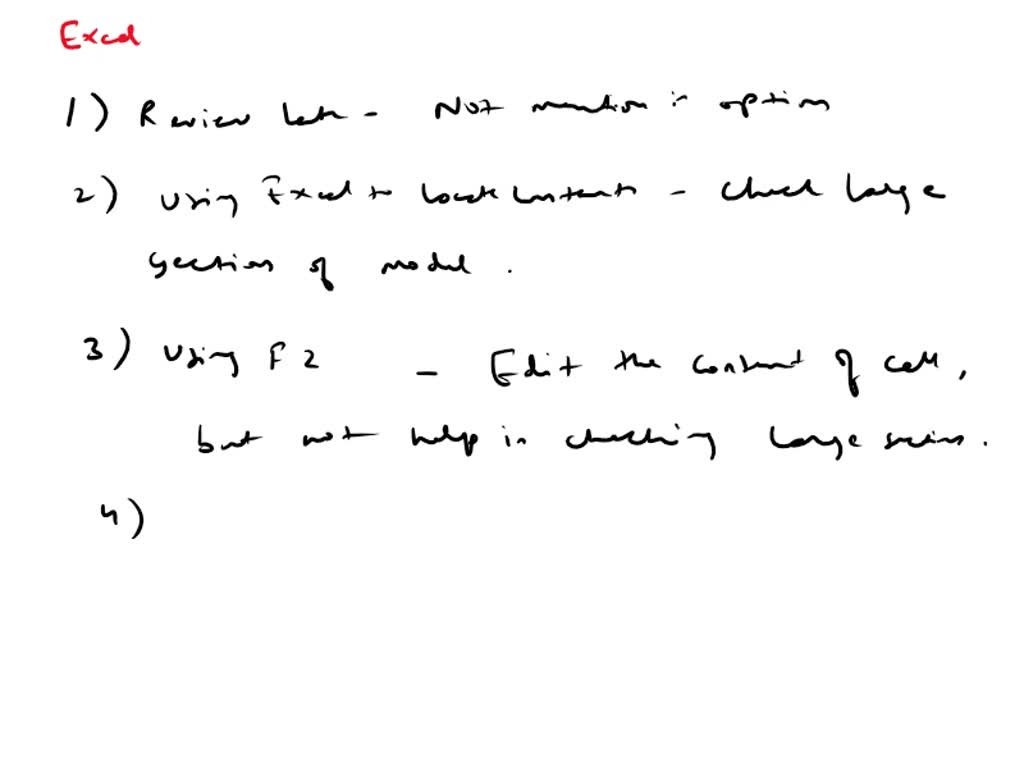 Excel
1) Review later - Not mention in option
2) Using Excel to locate constants - check large
section of model.
3) Using F2 - Edit the content of cell,
but not help in checking large section.
4)